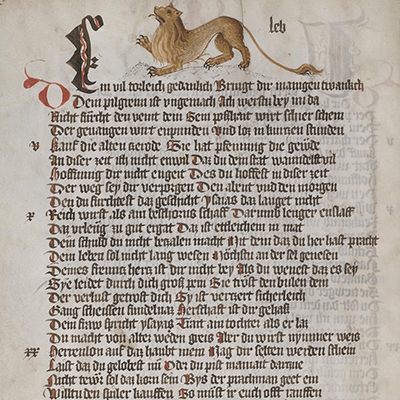 leb
Ein vil torleich gedanckleich Bringt dir manigen twanckleich
Dem pilgreim ist ungemach Ach werstu bey mi da
Nicht fürcht den veint dein Sein poshait wirt schier schein
Der gevangen wirt enpunden Und los in kurczen stunden
v Kauf die alten Sy hat pfenning die
An diser zeit ich nicht enwil Daz du dein stat wanndelst vil
Hoffnung dir nicht enget Des du hoffest in diser zeit
Der weg sey dir verporgen Den abent und den morgen
Den du fürchtest daz geschicht ysaias daz lauget nicht
x Reich wirst als am beschorns schaff Darumb lenger entslaff
Daz urleug zu gut ergat Daz ist ettleichem in mat
Dein schuld du nicht beczalen macht Mit dem daz du her hast pracht
Dem leben sol nicht lang wesen Nöchsten an der sel genesen
Deines freuntz hertz ist dir nicht bey Als du wenest daz es sey
Sy e leidet durch dich gross pein Sie tröst den pulen dein
Der verlust getröst dich Sy ist verczert sicherleich
Gang scheissen Herschaft ist dir gehass
Dein fraw spricht ysayas Tint am tochter als er las
Du macht von alter weden greis Aber du wirst nymmer weis
xx Herrenlon auf daz haubt mein Mag dir selten werden schein
Laist daz du gelobest nu Oder du pist mainait darzue
Nicht tewr sol daz korn sein Bys der prachman geet ein
Wilt du den spiler kauffen So must ir euch offt rauffen